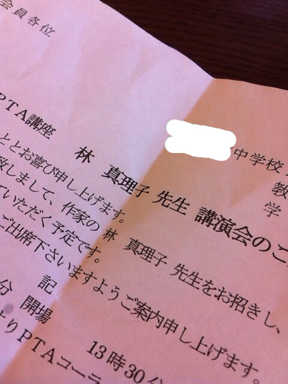 会員各位
中学校
教
学
PTA講座 林 真理子 先生 講演会のご
とお喜び申し上げます。
致しまして、作家の 林 真理子 先生をお招きし、
ていただく予定です。
ご出席下さいますようご案内申し上げます
記
分 開場 13時30分
よりPTAコーラ